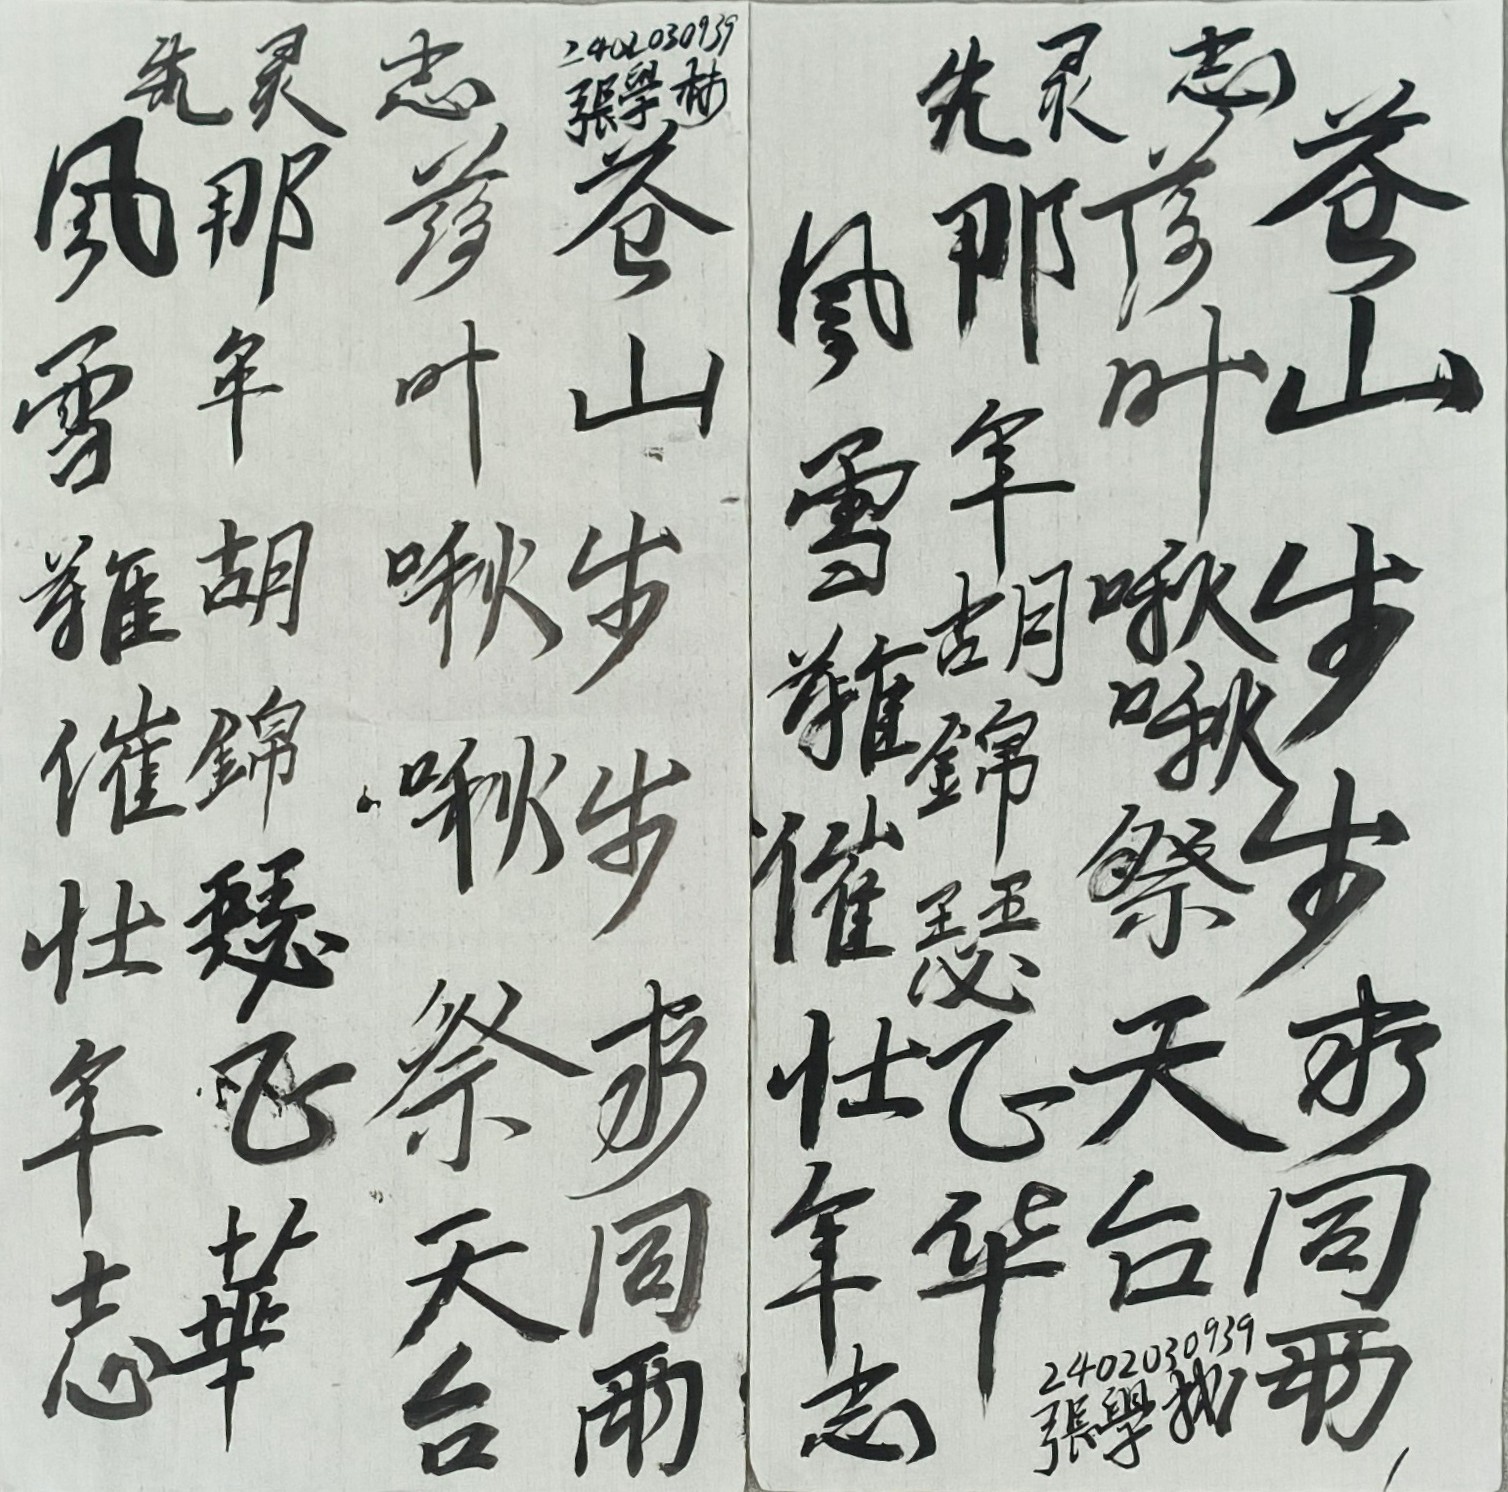 志灵先
苍山步步同雨
落叶啾啾祭天台
那年胡錦瑟飞华
風雪難催壮年志
2402030939
張學
2402030939
張學
志灵先
苍山步步同雨
落叶啾啾祭天台
那年胡錦瑟飞華
風雪難催壮年志